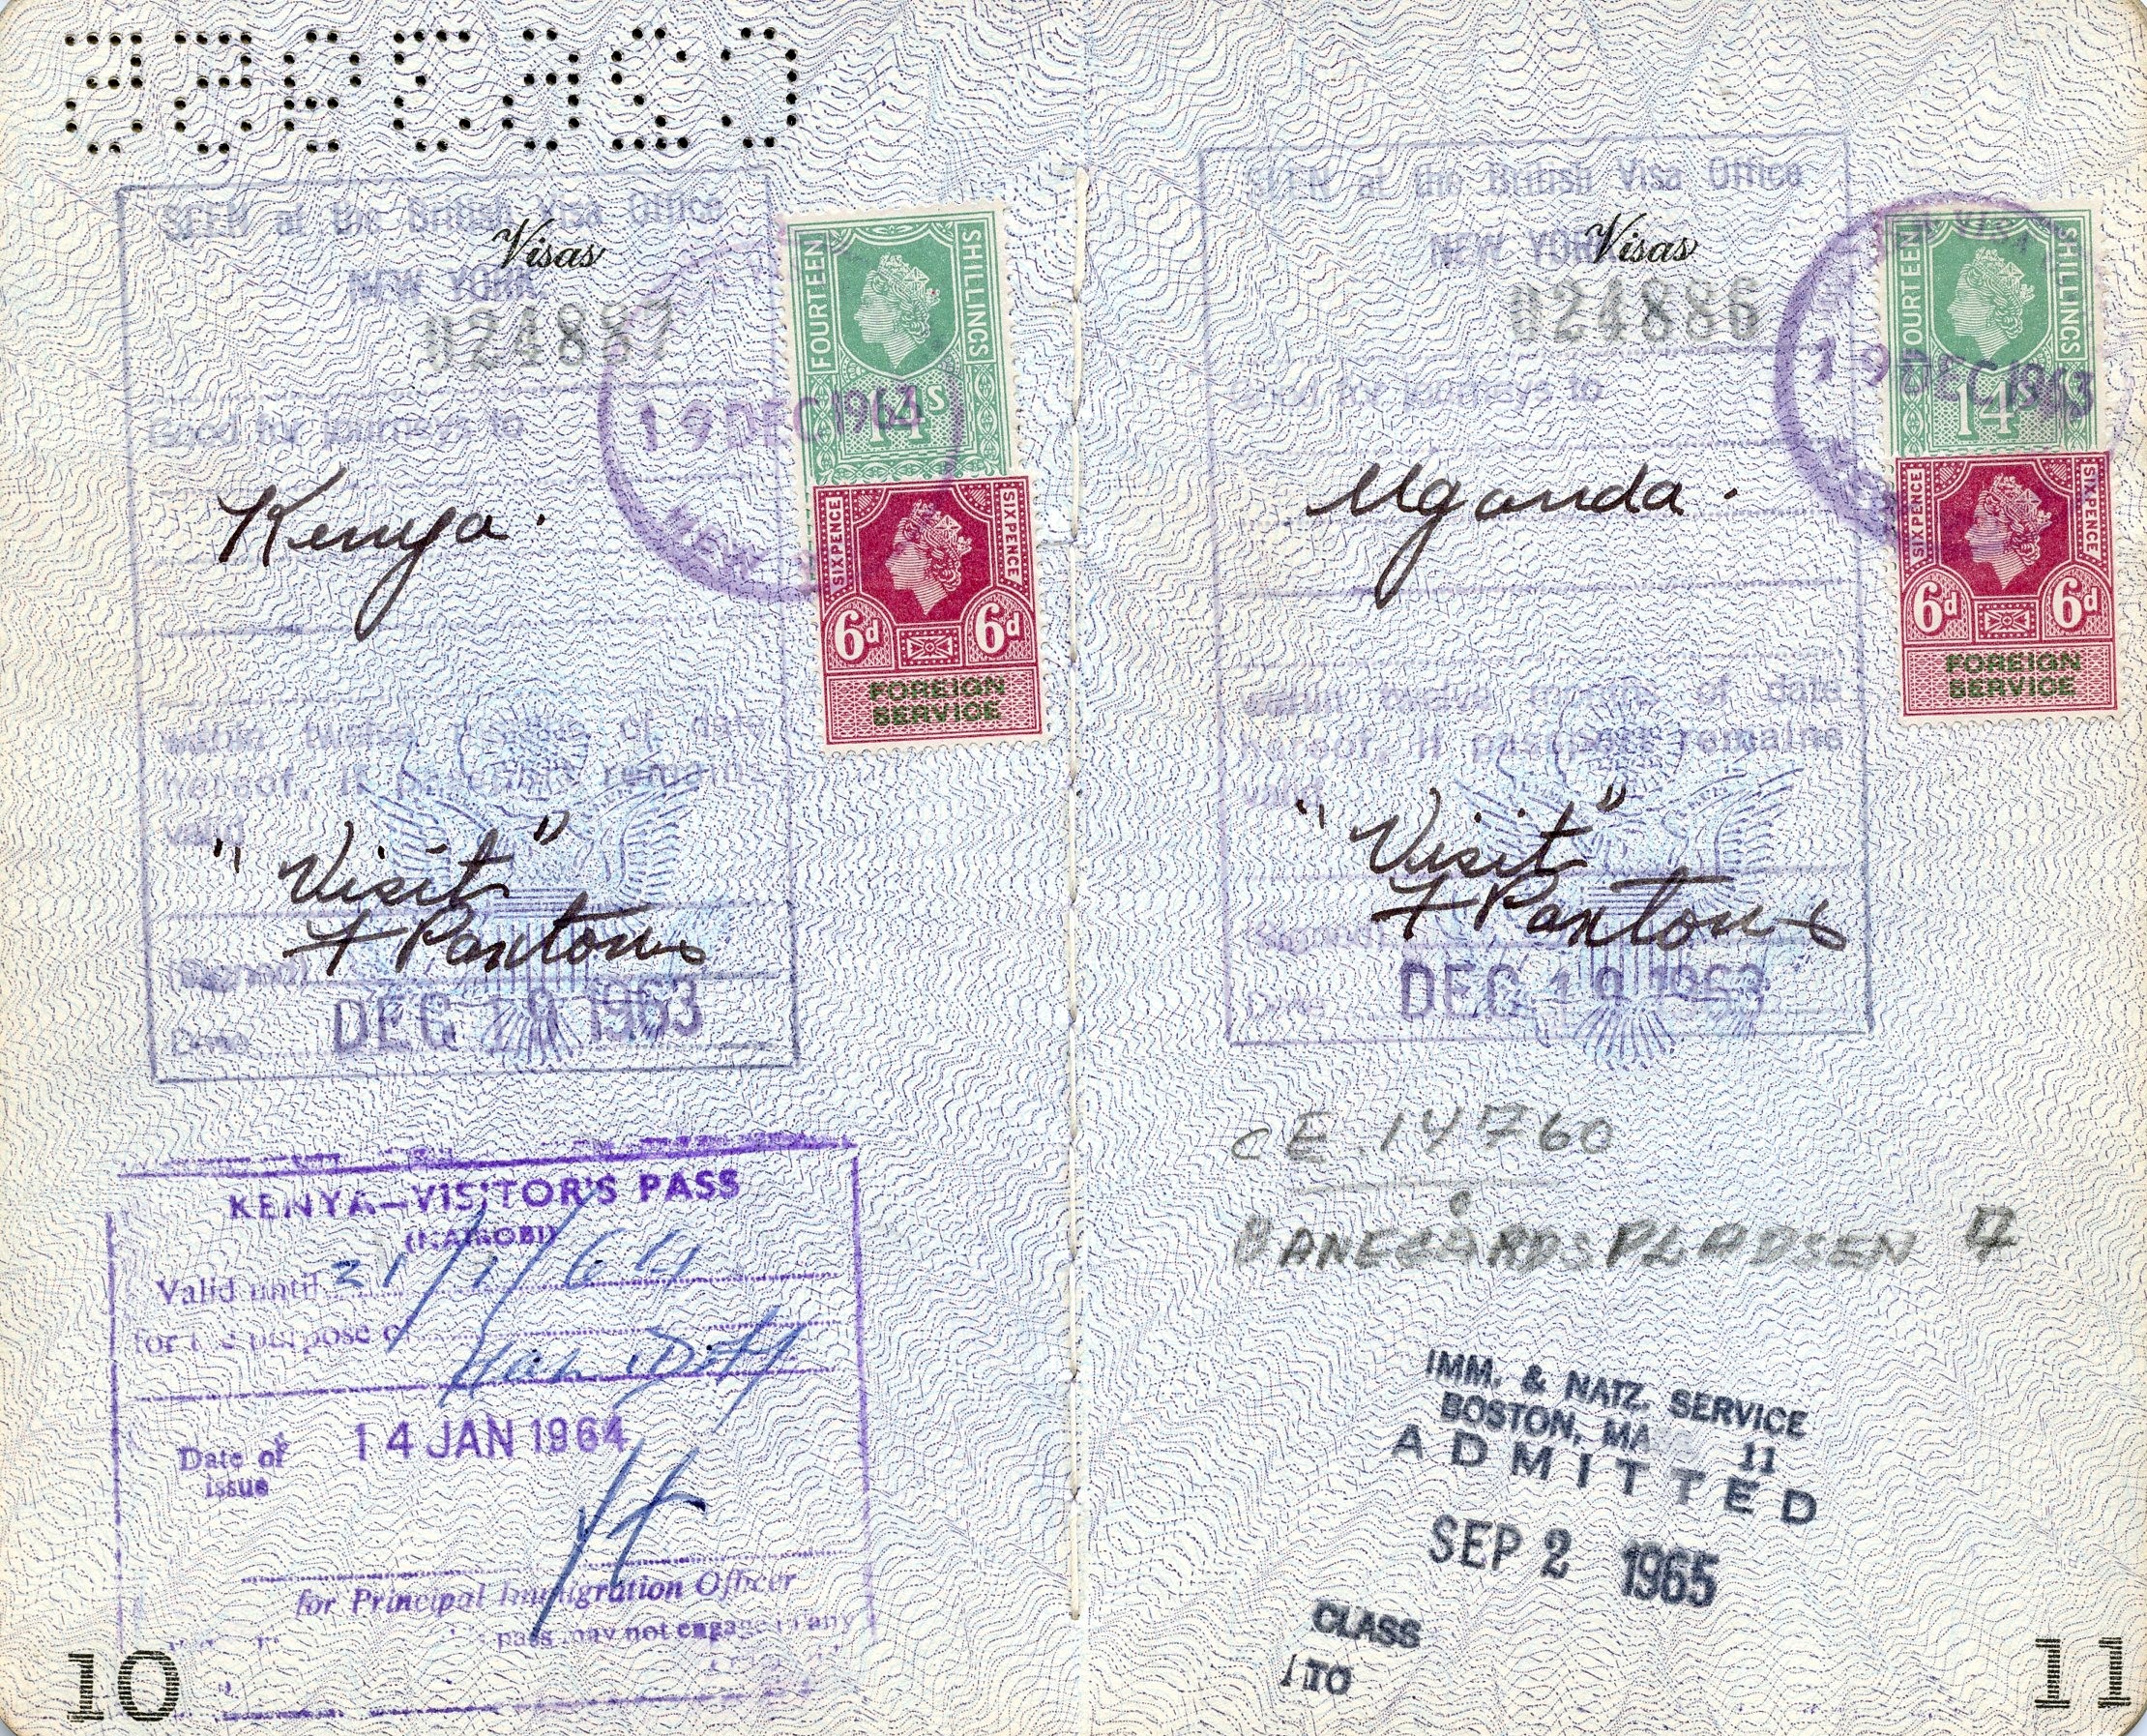 SEEN at the British Visa Office
Visas
NEW YORK.
024887
Good for journeys to
Kenya.
within twelve of date
hereof, if passport remains
valid
"Visit"
F Pantons
(Signed)
DEC 19 1963
Date
FOURTEEN SHILLINGS
14s
19 DEC 1963
NEW
SIXPENCE SIXPENCE
6d 6d
FOREIGN
SERVICE
KENYA—VISITOR'S PASS
(NAIROBI)
Valid until 21/1/64
for the purpose of
Date of
issue
14 JAN 1964
for Principal Immigration Officer
pass may not engage in any
10
SEEN at the British Visa Office
Visas
NEW YORK
024886
Good for journeys to
Uganda.
within twelve months of date
hereof, if passport remains
valid
"Visit"
F Pantons
(Signed)
DEC 19 1963
Date
FOURTEEN SHILLINGS
14s
19 DEC 1963
NEW
SIXPENCE SIXPENCE
6d 6d
FOREIGN
SERVICE
CE.14760
BANEGÅRDSPLADSEN
IMM. & NATZ. SERVICE
BOSTON, MA 11
ADMITTED
SEP 2 1965
CLASS
TO
11